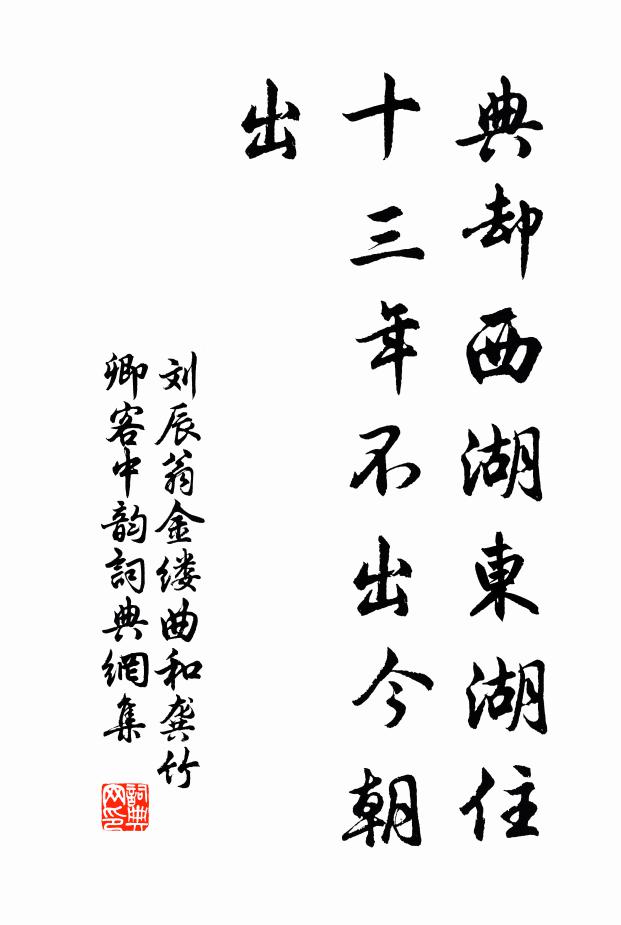 典却西湖東湖住
十三年不出今朝
出
刘辰翁金缕曲和龚竹
卿客中韵詞典網集
詞典
网印